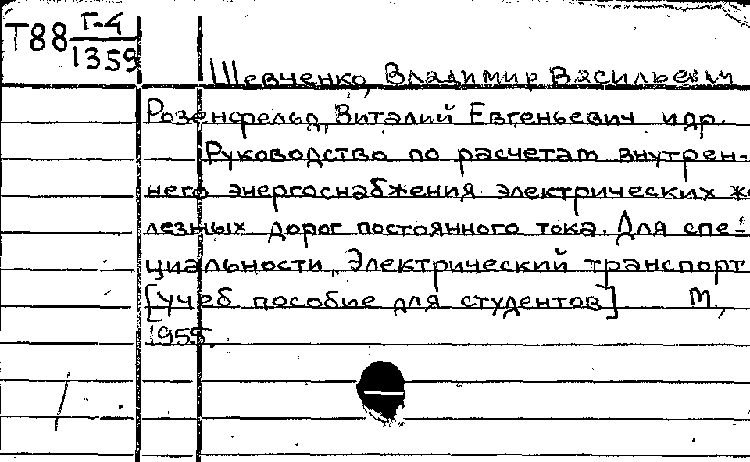 Т88 Г-4
1359
Шевченко, Владимир Васильевич
Розенфельд, Виталий Евгеньевич и др.
Руководство по расчетам внутрен-
него энергоснабжения электрических же
лезных дорог постоянного тока. Для спе-
циальности „Электрический транспорт
[учеб. пособие для студентов] М,
1955.